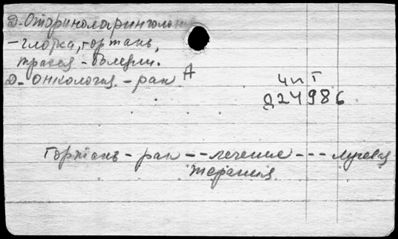 Д-Оториноларинголо
-глотка, гортань,
трахея - болезни.
Д- онкология. - рак А
ЧиТ
Д24986
Гортань - рак - - лечение - - - лучевая
терапия